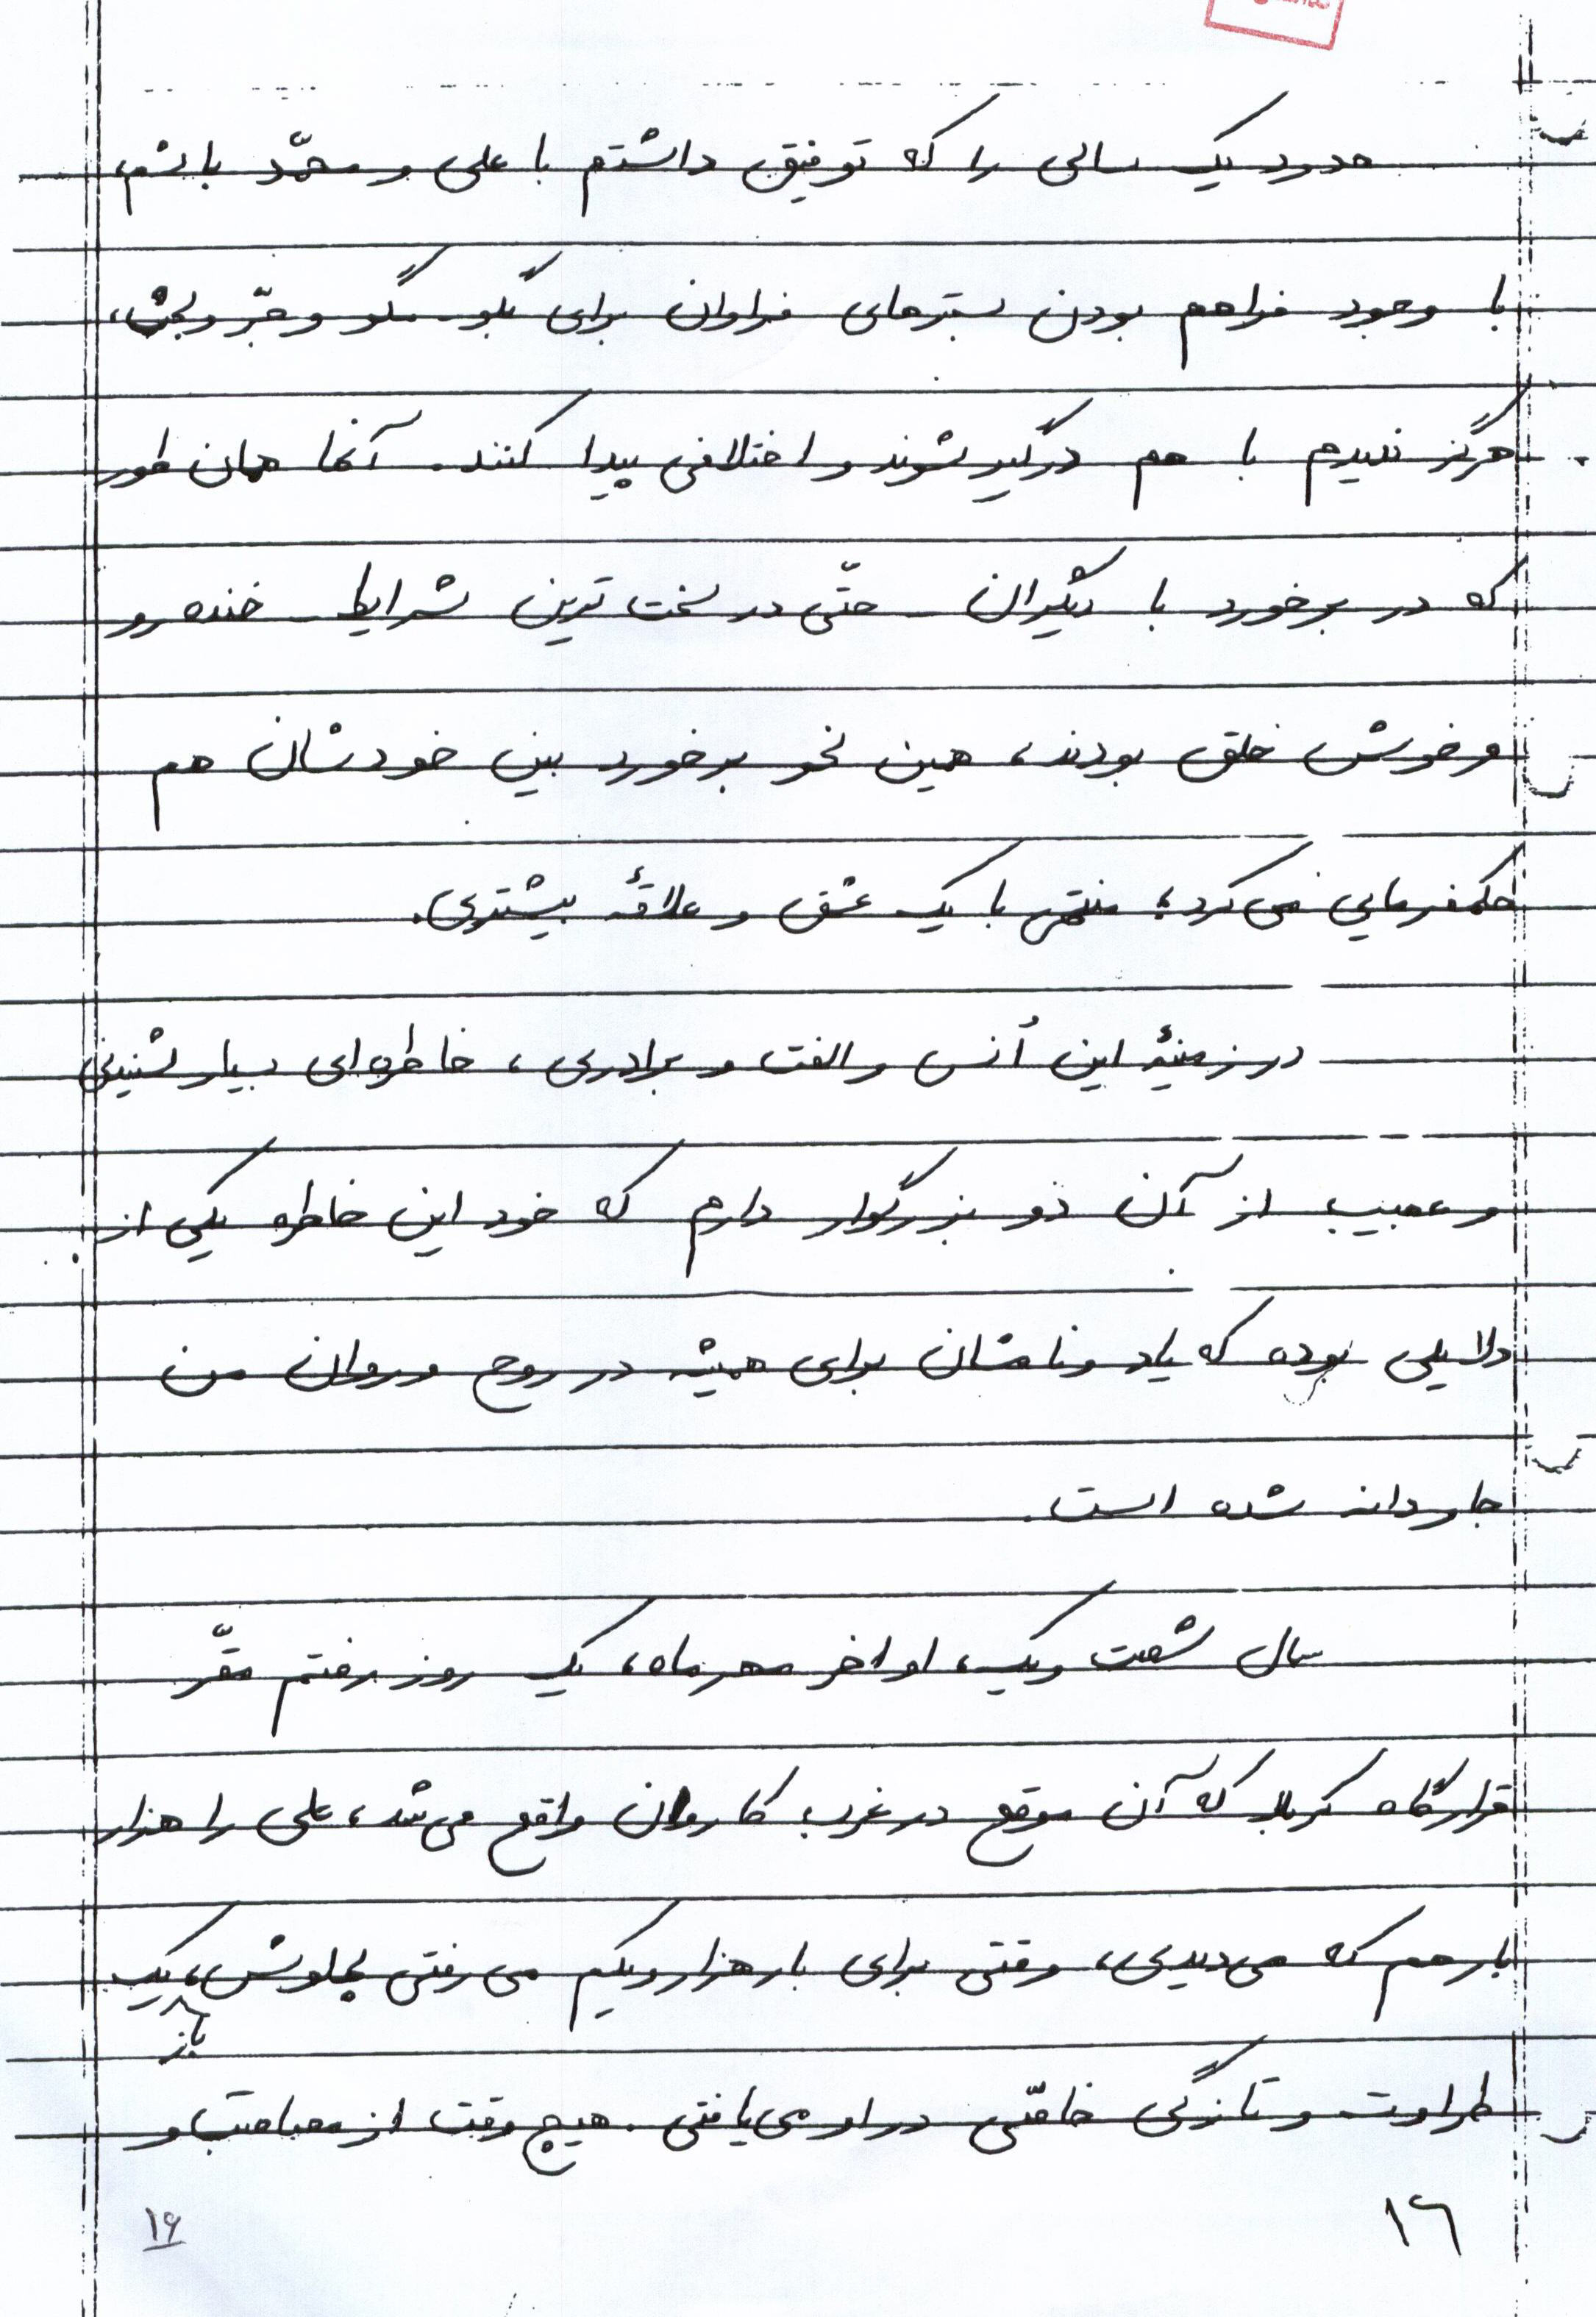 حدود یک سالی را که توفیق داشتم با علی و محمّد باشم،
با وجود فراهم بودن بسترهای فراوان برای بگو مگو و جرّ و بحث،
هرگز ندیدم با هم درگیر شوند و اختلافی پیدا کنند. آنها همان طور
که در برخورد با دیگران - حتّی در سخت ترین شرایط - خنده رو
و خوش خلق بودند، همین نحو برخورد بین خودشان هم
حکمفرمایی می کرد؛ منتهی با یک عشق و علاقۀ بیشتری.
در زمینۀ این اُنس و الفت و برادری، خاطره ای بسیار شنیدنی
و عجیب از آن دو بزرگوار دارم که خود این خاطره یکی از
دلایلی بوده که یاد و نامشان برای همیشه در روح و روان من
جاودانه شده است.
سال شصت و یک، اواخر مهرماه، یک روز رفتم مقرّ
قرارگاه کربلا که آن موقع در غرب کارون واقع می شد، علی را هزار
بار هم که می دیدی، وقتی برای بار هزار و یکم می رفتی جلوش، یک
باز
طراوت و تازگی خاصّی در او می یافتی. هیچ وقت از مصاحبت و
۱۶
۱۶